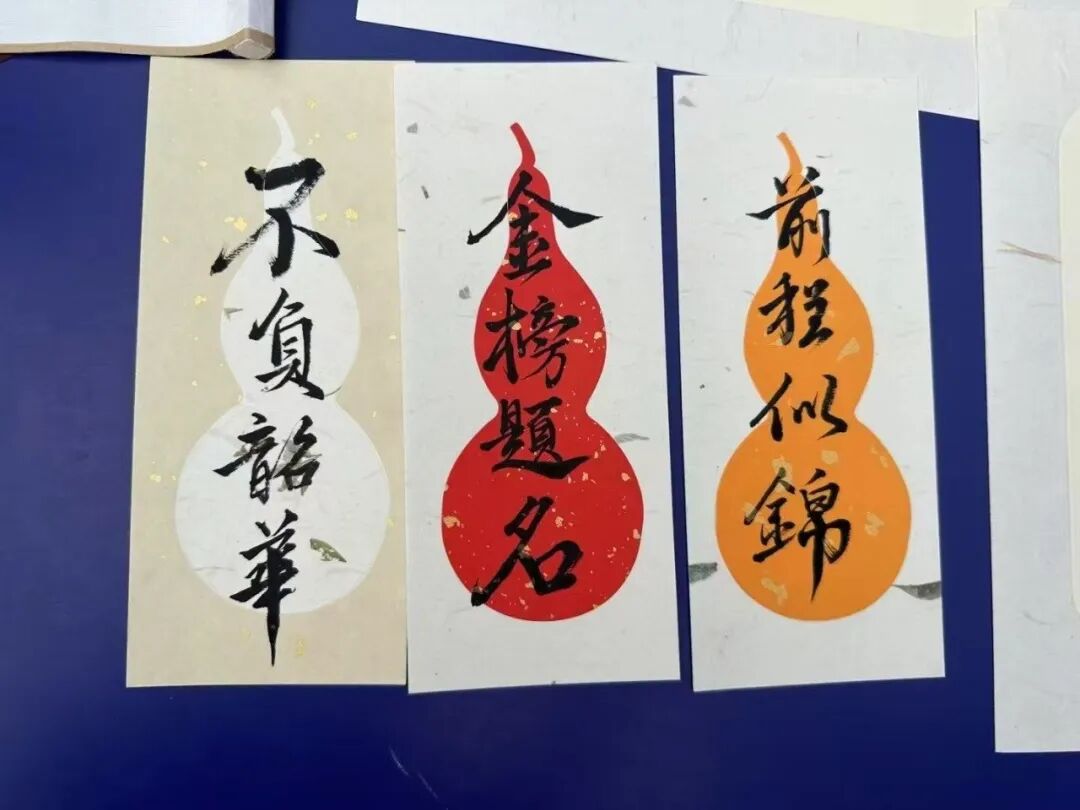 不負韶華
金榜題名
前程似錦